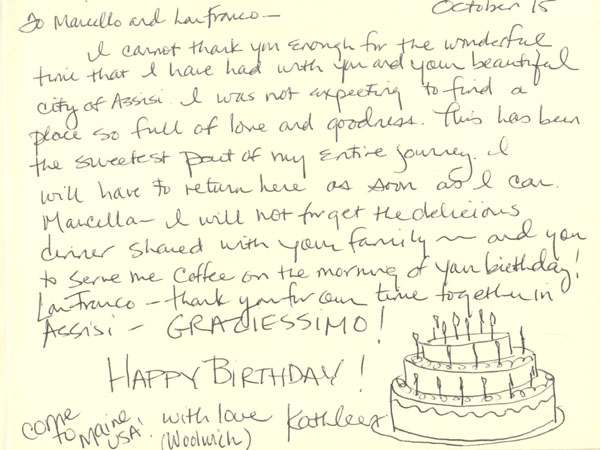 October 15
To Marcello and LanFranco—
I cannot thank you enough for the wonderful
time that I have had with you and your beautiful
city of Assisi. I was not expecting to find a
place so full of love and goodness. This has been
the sweetest part of my entire journey. I
will have to return here as soon as I can.
Marcella— I will not forget the delicious
dinner shared with your family — and you
to serve me coffee on the morning of your birthday!
LanFranco — thank you for our time together in
Assisi — GRAZIESSIMO!
HAPPY BIRTHDAY!
come to Maine USA!
with love Kathleen
(Woolwich)